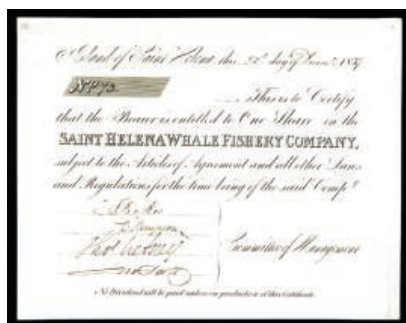 Island of Saint Helena, this 22d day of 1837
No. 73.
This is to Certify
that the Bearer is entitled to One Share in the
SAINT HELENA WHALE FISHERY COMPANY,
subject to the Articles of Agreement and all other Laws
and Regulations for the time being of the said Compy
Committee of Management
No Dividend will be paid unless on production of this Certificate.